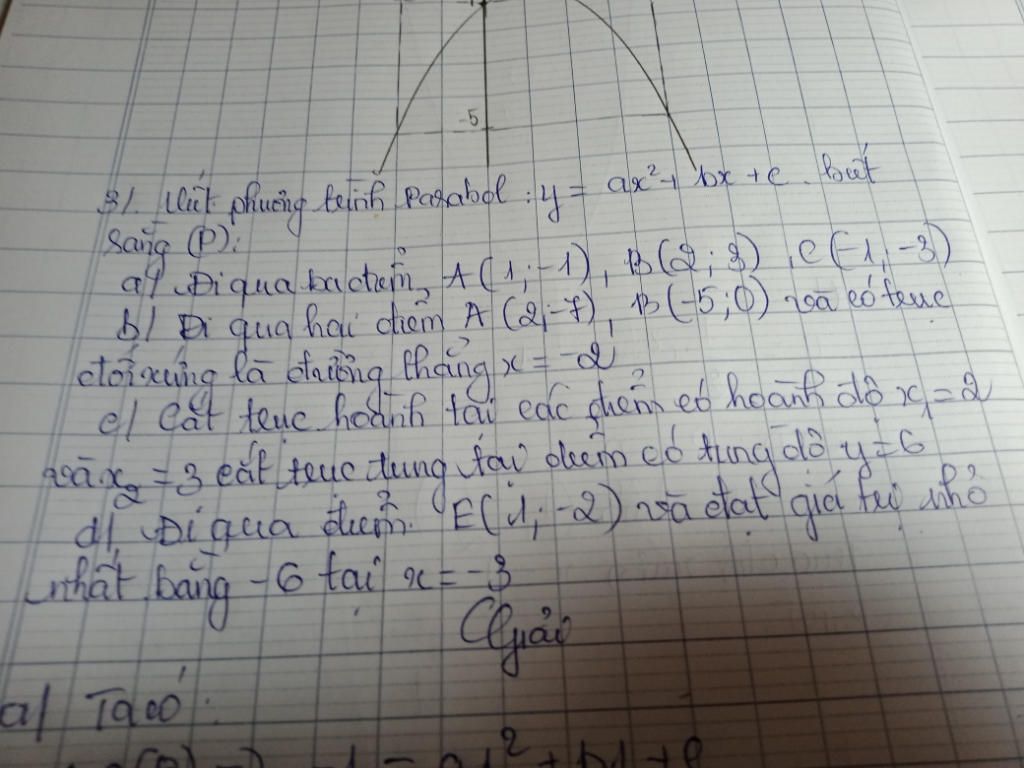 -5
3/. Viết phương trình Parabol : y = ax² + bx + c. biết
rằng (P):
a/ Đi qua ba điểm, A(1;-1), B(2;3), C(-1,-3)
b/ Đi qua hai điểm A(2;-7), B(-5;0) và có trục
đối xứng là đường thẳng x = -2
c/ Cắt trục hoành tại các điểm có hoành độ x₁ = 2
và x₂ = 3 cắt trục tung tại điểm có tung độ y = 6
d/ Đi qua điểm E(1;-2) và đạt giá trị nhỏ
nhất bằng -6 tại x = -3
Giải
a/ Ta có :
-1 = a1² + b1 + c